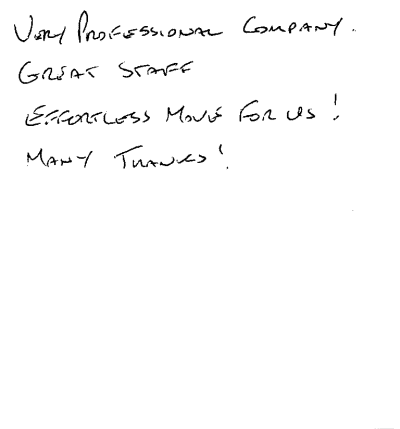 Very Professional Company.
Great Staff
Effortless Move for us!
Many Thanks!